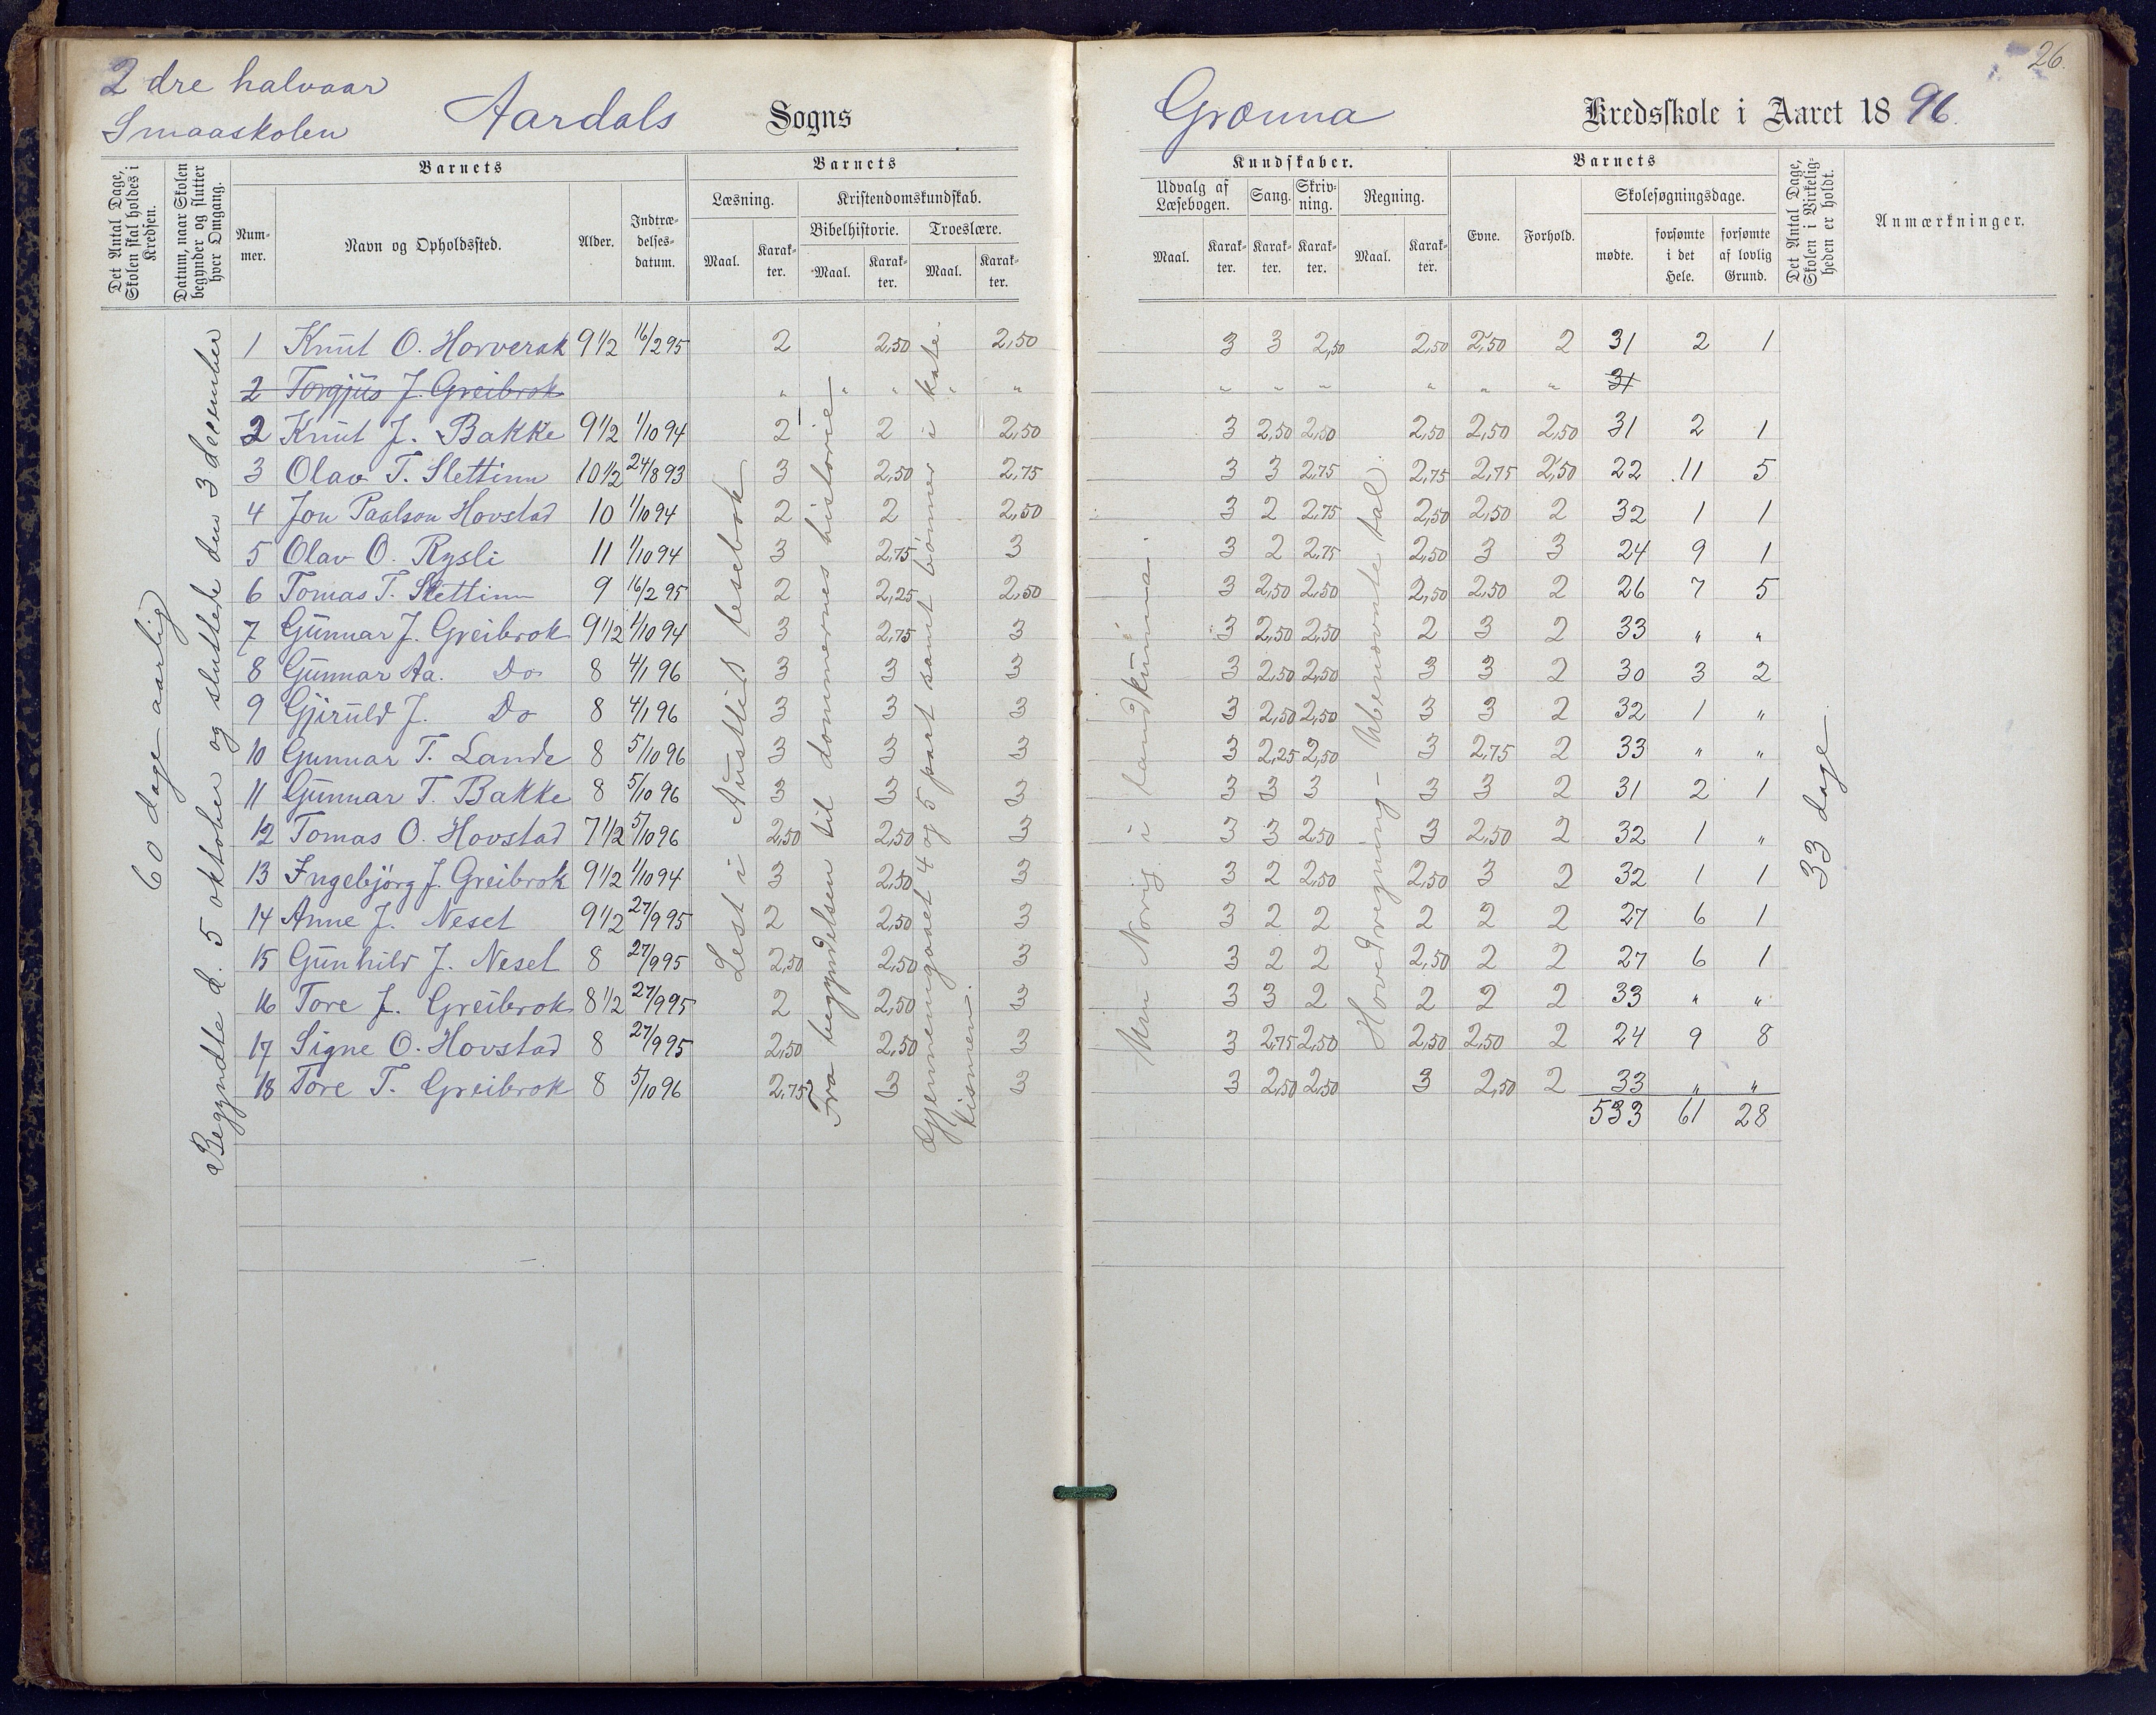 26.
2 dre halvaar
Smaaskolen
Aardals Sogns
Grønna Kredsskole i Aaret 1896.
Det Antal Dage, Skolen skal holdes i Kredsen.
Datum, naar Skolen begynder og slutter hver Omgang.
Barnets
Nummer.
Navn og Opholdssted.
Alder.
Indtrædelsesdatum.
Barnets
Læsning.
Maal.
Karakter.
Kristendomskundskab.
Bibelhistorie.
Maal.
Karakter.
Troeslære.
Maal.
Karakter.
Kundskaber.
Udvalg af Læsebogen.
Maal.
Karakter.
Sang.
Karakter.
Skrivning.
Karakter.
Regning.
Maal.
Karakter.
Barnets
Evne.
Forhold.
Skolesøgningsdage.
mødte.
forsømte i det Hele.
forsømte af lovlig Grund.
Det Antal Dage, Skolen i Virkeligheden er holdt.
Anmærkninger.
60 dage aarlig
Begyndte d. 5 oktober og sluttede den 3 december
Lest i Austlid lesebok
Fra begyndelsen til dommernes historie
Gjennemgaaet 4 og 5 part samt bönner i katekismen.
Um Norig i landkunna.
Hovedregning – Ubenævnte tal
33 dage
1 Knut O. Horverak 9 1/2 16/2 95 2 2,50 2,50 3 3 2,50 2,50 2,50 2 31 2 1
2 Torgjus J. Greibrok " " " " " " " " " " " 31
2 Knut J. Bakke 9 1/2 1/10 94 2 2 2,50 3 2,50 2,50 2,50 2,50 2,50 31 2 1
3 Olav T. Slettinn 10 1/2 24/8 93 3 2,50 2,75 3 3 2,75 2,75 2,75 2,50 22 11 5
4 Jon Paalson Hovstad 10 1/10 94 2 2 2,50 3 2 2,75 2,50 2,50 2 32 1 1
5 Olav O. Rysli 11 1/10 94 3 2,75 3 3 2 2,75 2,50 3 3 24 9 1
6 Tomas T. Slettinn 9 16/2 95 2 2,25 2,50 3 2,50 2,50 2,50 2,50 2 26 7 5
7 Gunnar J. Greibrok 9 1/2 1/10 94 3 2,75 3 3 2,50 2,50 2 3 2 33 " "
8 Gunnar Aa. Do 8 4/1 96 3 3 3 3 2,50 2,50 3 3 2 30 3 2
9 Gjeruld J. Do 8 4/1 96 3 3 3 3 2,50 2,50 3 3 2 32 1 "
10 Gunnar T. Lande 8 5/10 96 3 3 3 3 2,25 2,50 3 2,75 2 33 " "
11 Gunnar T. Bakke 8 5/10 96 3 3 3 3 3 3 3 3 2 31 2 1
12 Tomas O. Hovstad 7 1/2 5/10 96 2,50 2,50 3 3 3 2,50 3 2,50 2 32 1 "
13 Ingebjörg J. Greibrok 9 1/2 1/10 94 3 2,50 3 3 2 2,50 2,50 3 2 32 1 1
14 Anne J. Neset 9 1/2 27/9 95 2 2,50 3 3 2 2 2 2 2 27 6 1
15 Gunhild J. Neset 8 27/9 95 2,50 2,50 3 3 2 2 2,50 2 2 27 6 1
16 Tore J. Greibrok 8 1/2 27/9 95 2 2,50 3 3 3 2 2 2 2 33 " "
17 Signe O. Hovstad 8 27/9 95 2,50 2,50 3 3 2,75 2,50 2,50 2,50 2 24 9 8
18 Tore T. Greibrok 8 5/10 96 2,75 3 3 3 2,50 2,50 3 2,50 2 33 " "
533 61 28